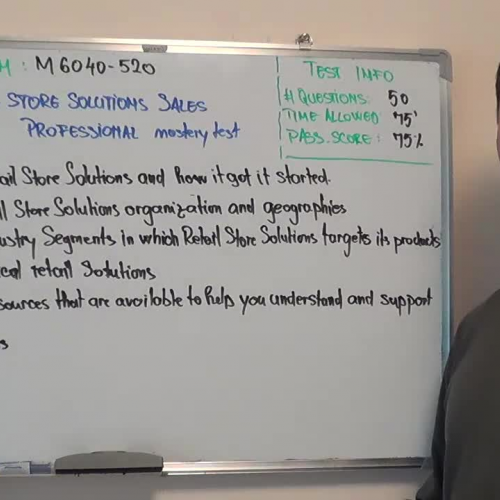 M : M6040-520
STORE SOLUTIONS SALES
PROFESSIONAL mastery test
TEST INFO
# QUESTIONS: 50
TIME ALLOWED 75'
PASS. SCORE : 75%
ail Store Solutions and how it got it started.
l Store Solutions organization and geographies
ustry Segments in which Retail Store Solutions targets its products
cal retail Solutions
sources that are available to help you understand and support
s